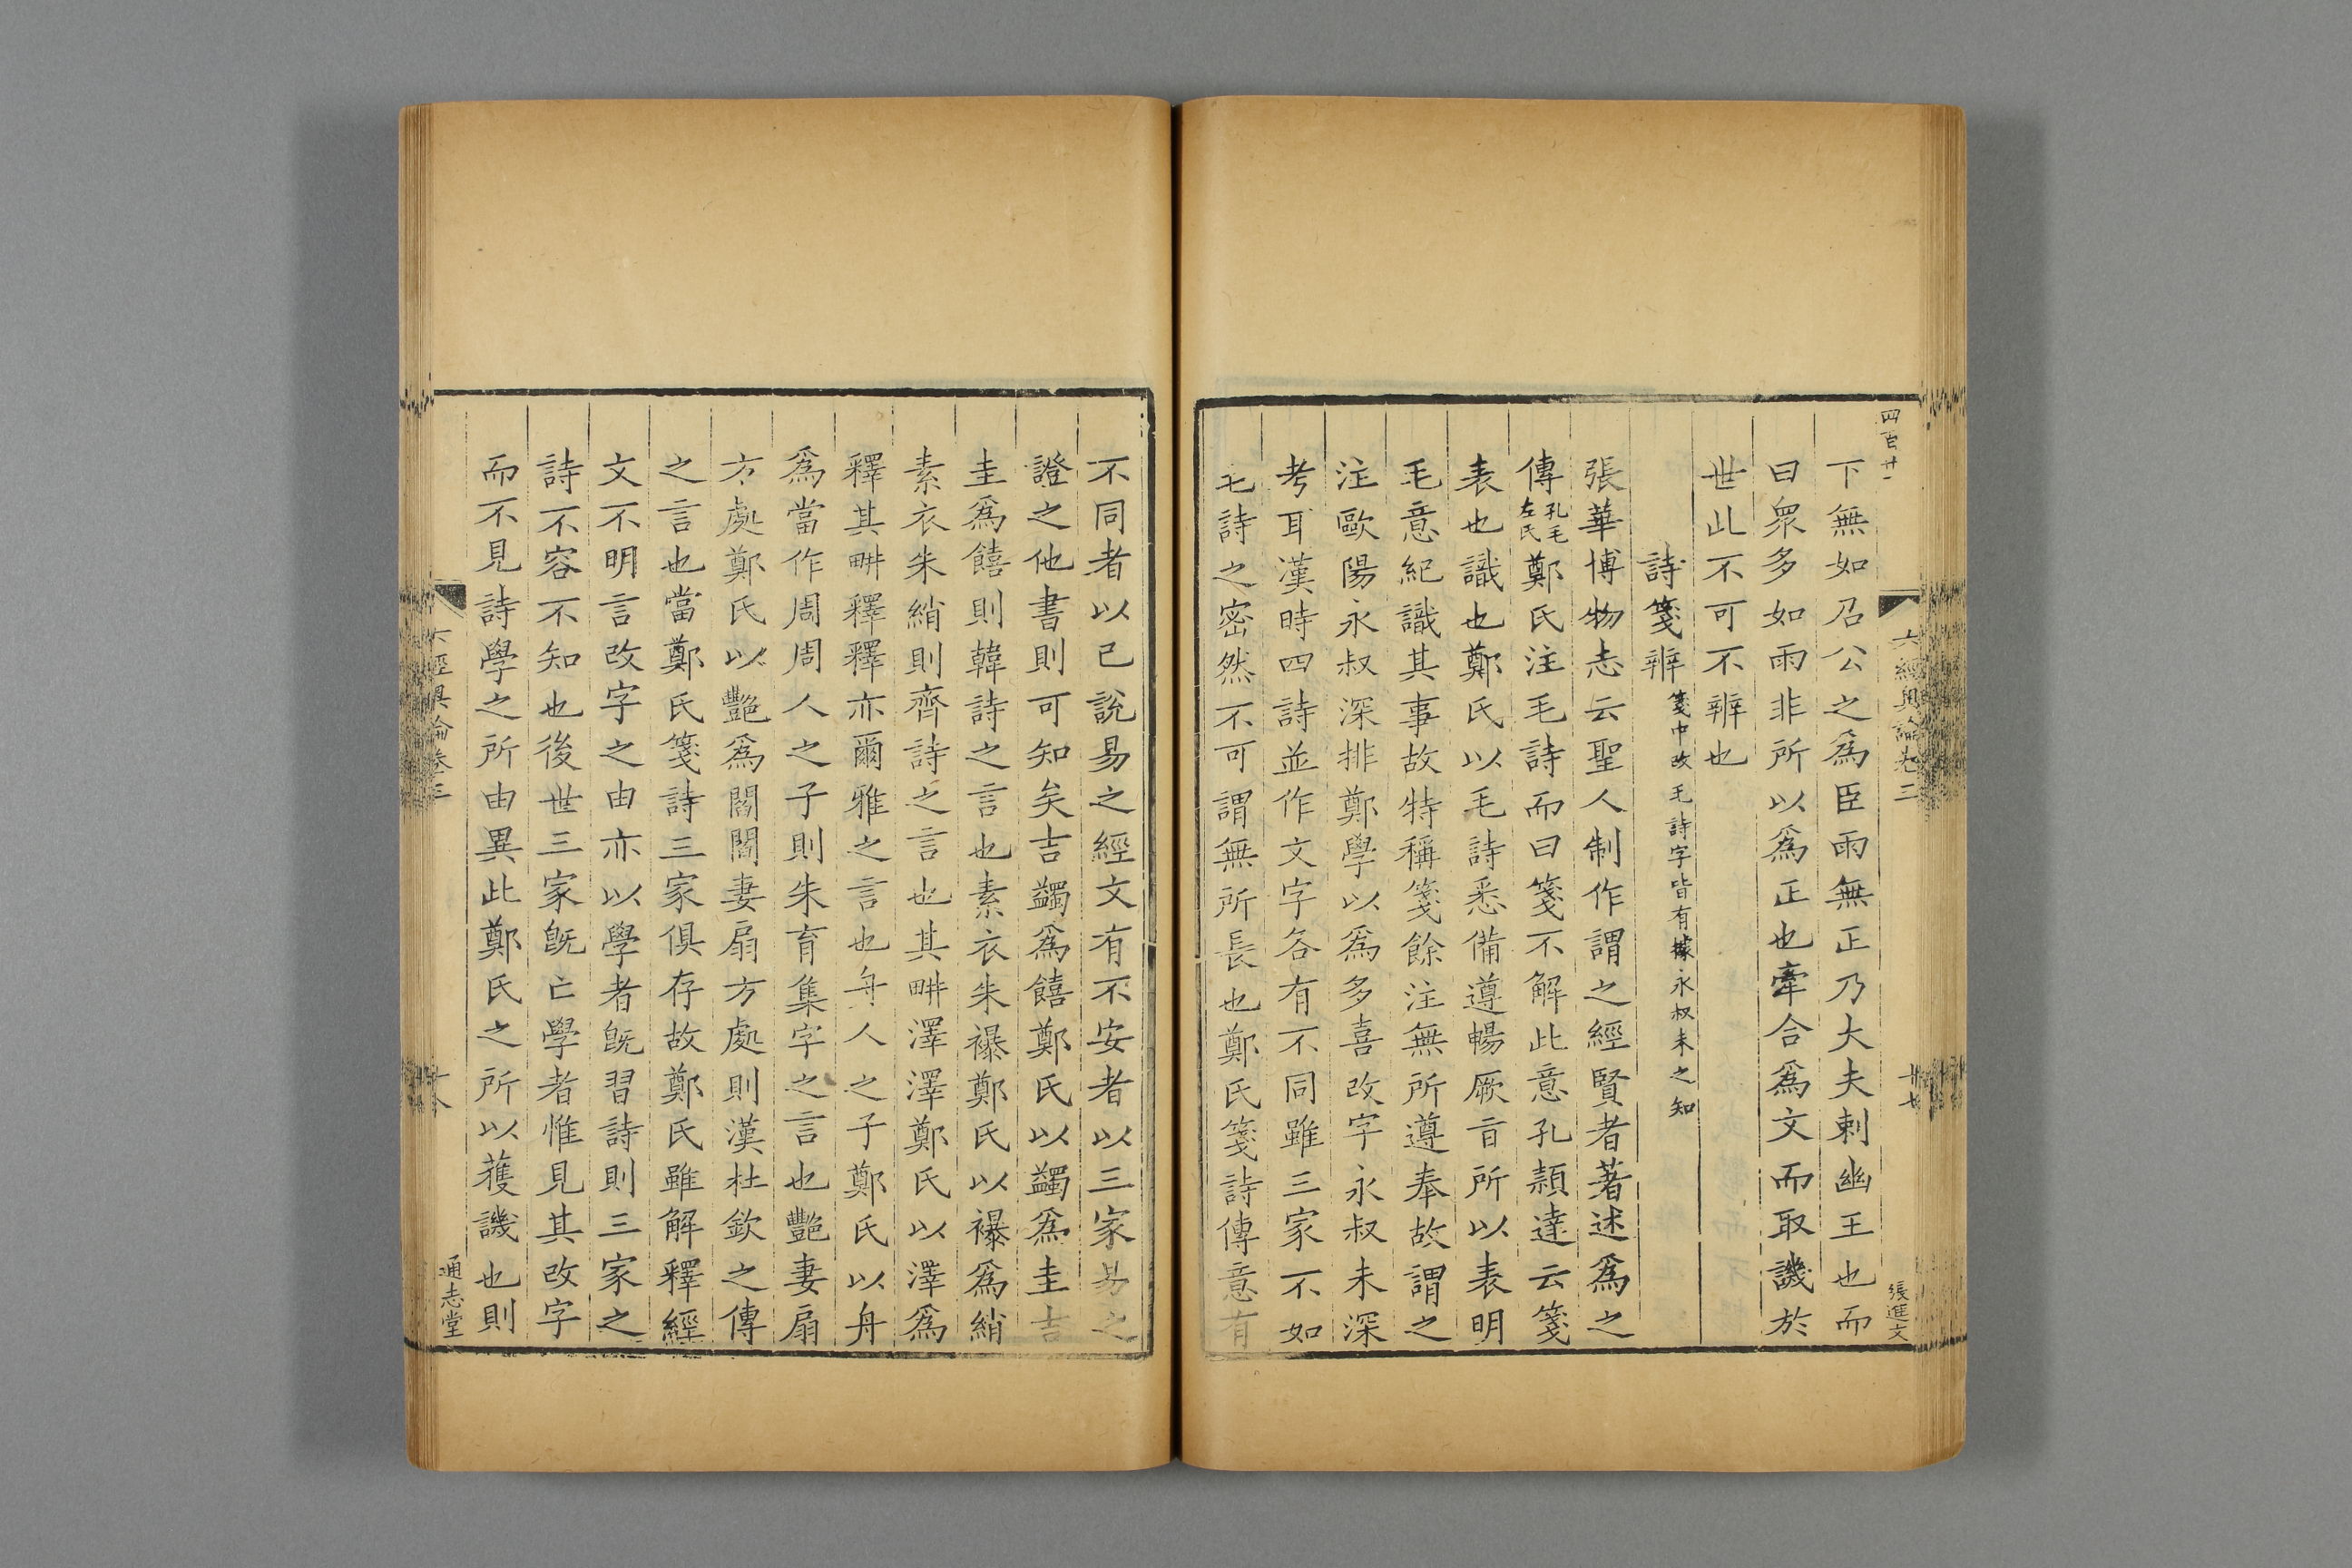 四百廿一
六經奧論卷三
廿七
張進文
下無如召公之為臣雨無正乃大夫刺幽王也而
曰衆多如雨非所以為正也牽合為文而取譏於
世此不可不辨也
詩箋辨 箋中改毛詩字皆有據永叔未之知
張華博物志云聖人制作謂之經賢者著述為之
傳孔毛左氏鄭氏注毛詩而曰箋不解此意孔頴達云箋
表也識也鄭氏以毛詩悉備遵暢厥旨所以表明
毛意紀識其事故特稱箋餘注無所遵奉故謂之
注歐陽永叔深排鄭學以為多喜改字永叔未深
考耳漢時四詩並作文字各有不同雖三家不如
毛詩之密然不可謂無所長也鄭氏箋詩傳意有
不同者以己說易之經文有不安者以三家易之
證之他書則可知矣吉蠲為饎鄭氏以蠲為圭吉
圭為饎則韓詩之言也素衣朱襮鄭氏以襮為綃
素衣朱綃則齊詩之言也其畊澤澤鄭氏以澤為
釋其畊釋釋亦爾雅之言也舟人之子鄭氏以舟
為當作周周人之子則朱育集字之言也豔妻扇
方處鄭氏以豔為閻閻妻扇方處則漢杜欽之傳
之言也當鄭氏箋詩三家俱存故鄭氏雖解釋經
文不明言改字之由亦以學者既習詩則三家之
詩不容不知也後世三家既亡學者惟見其改字
而不見詩學之所由異此鄭氏之所以獲譏也則
六經奧論卷三
廿八
通志堂